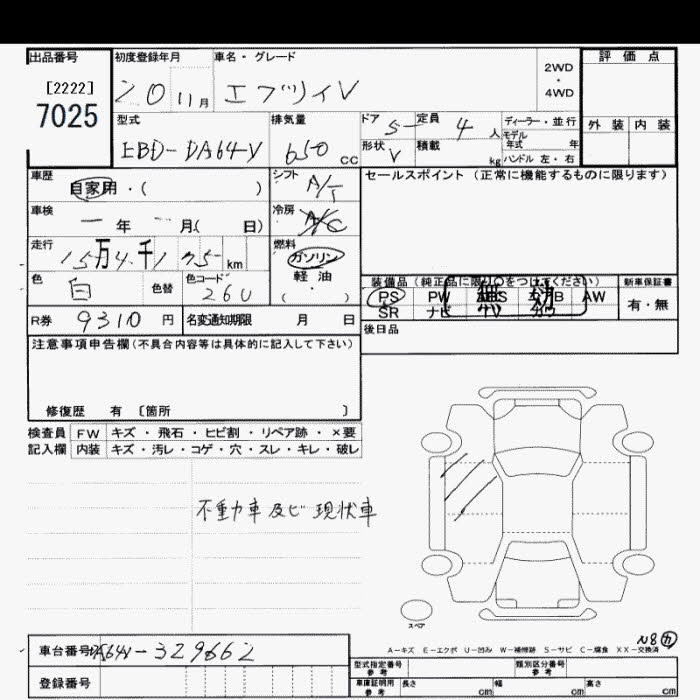 出品番号
[2222]
7025
初度登録年月
20 11月
車名・グレード
エブリィV
2WD
・
4WD
評価点
外装 内装
型式
EBD-DA64V
排気量
650 cc
ドア 5
定員 4 人
ディーラー・並行
モデル年式 年
形状 V
積載 kg
ハンドル 左・右
車歴
自家用・( )
シフト A/T
セールスポイント (正常に機能するものに限ります)
車検
一年 月( 日)
冷房 A/C
走行
15万4千175km
燃料
ガソリン
軽油
・
( )
色 白
色替
色コード 26U
装備品 (純正品に限り○をつけてください)
新車保証書
PS PW AW
SR ナビ
無効
有・無
R券 9310円
名変通知期限 月 日
後日品
注意事項申告欄 (不具合内容等は具体的に記入して下さい)
修復歴 有 [箇所 ]
検査員 FW キズ・飛石・ヒビ割・リペア跡・×要
記入欄 内装 キズ・汚レ・コゲ・穴・スレ・キレ・破レ
不動車及ビ現状車
スペア
A-キズ E-エクボ U-凹み W-補修跡 S-サビ C-腐食 XX-交換済
車台番号 DA64V-329662
登録番号
型式指定番号 参考
類別区分番号 参考
車庫証明用 参考
長さ cm 幅 cm 高さ cm